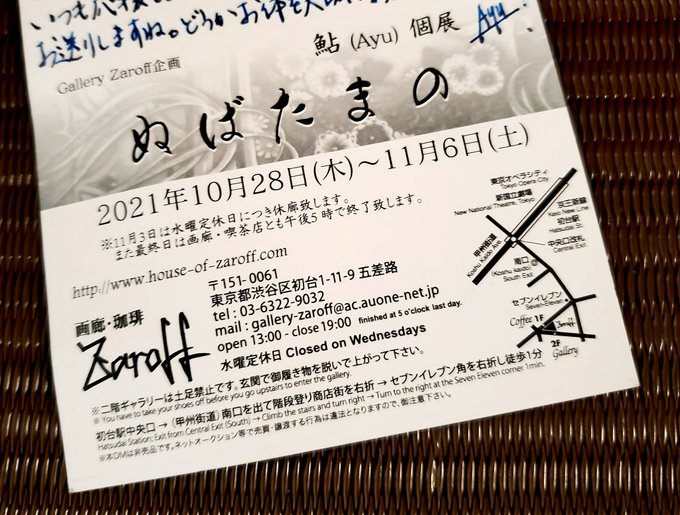 いつも応援
お送りしますね。どうかお体を大切に
Gallery Zaroff企画
鮎 (Ayu) 個展 Ayu.
ぬばたまの
2021年10月28日(木)〜11月6日(土)
※11月3日は水曜定休日につき休廊致します。
また最終日は画廊・喫茶店とも午後5時で終了致します。
http://www.house-of-zaroff.com
〒151-0061
東京都渋谷区初台1-11-9 五差路
tel : 03-6322-9032
mail : gallery-zaroff@ac.auone-net.jp
open 13:00 - close 19:00 finished at 5 o'clock last day.
水曜定休日 Closed on Wednesdays
画廊・珈琲
Zaroff
東京オペラシティ
Tokyo Opera City
新国立劇場
New National Theatre, Tokyo
京王新線
Keio New Line
初台駅
Hatsudai St.
甲州街道
Koshu Kaido Ave.
中央口改札
Central Exit
南口
(Koshu kaido)
South Exit
セブンイレブン
Seven-Eleven
Coffee 1F
2F
Gallery
※二階ギャラリーは土足禁止です。玄関で御履き物を脱いで上がって下さい。
※ You have to take your shoes off before you go upstairs to enter the gallery.
初台駅中央口 → (甲州街道) 南口を出て階段登り商店街を右折 → セブンイレブン角を右折し徒歩1分
Hatsudai Station: Exit from Central Exit (South) → Climb the stairs and turn right → Turn to the right at the Seven Eleven corner 1min.
※本DMは非売品です。ネットオークション等で売買・譲渡する行為は違法となりますので、御注意下さい。